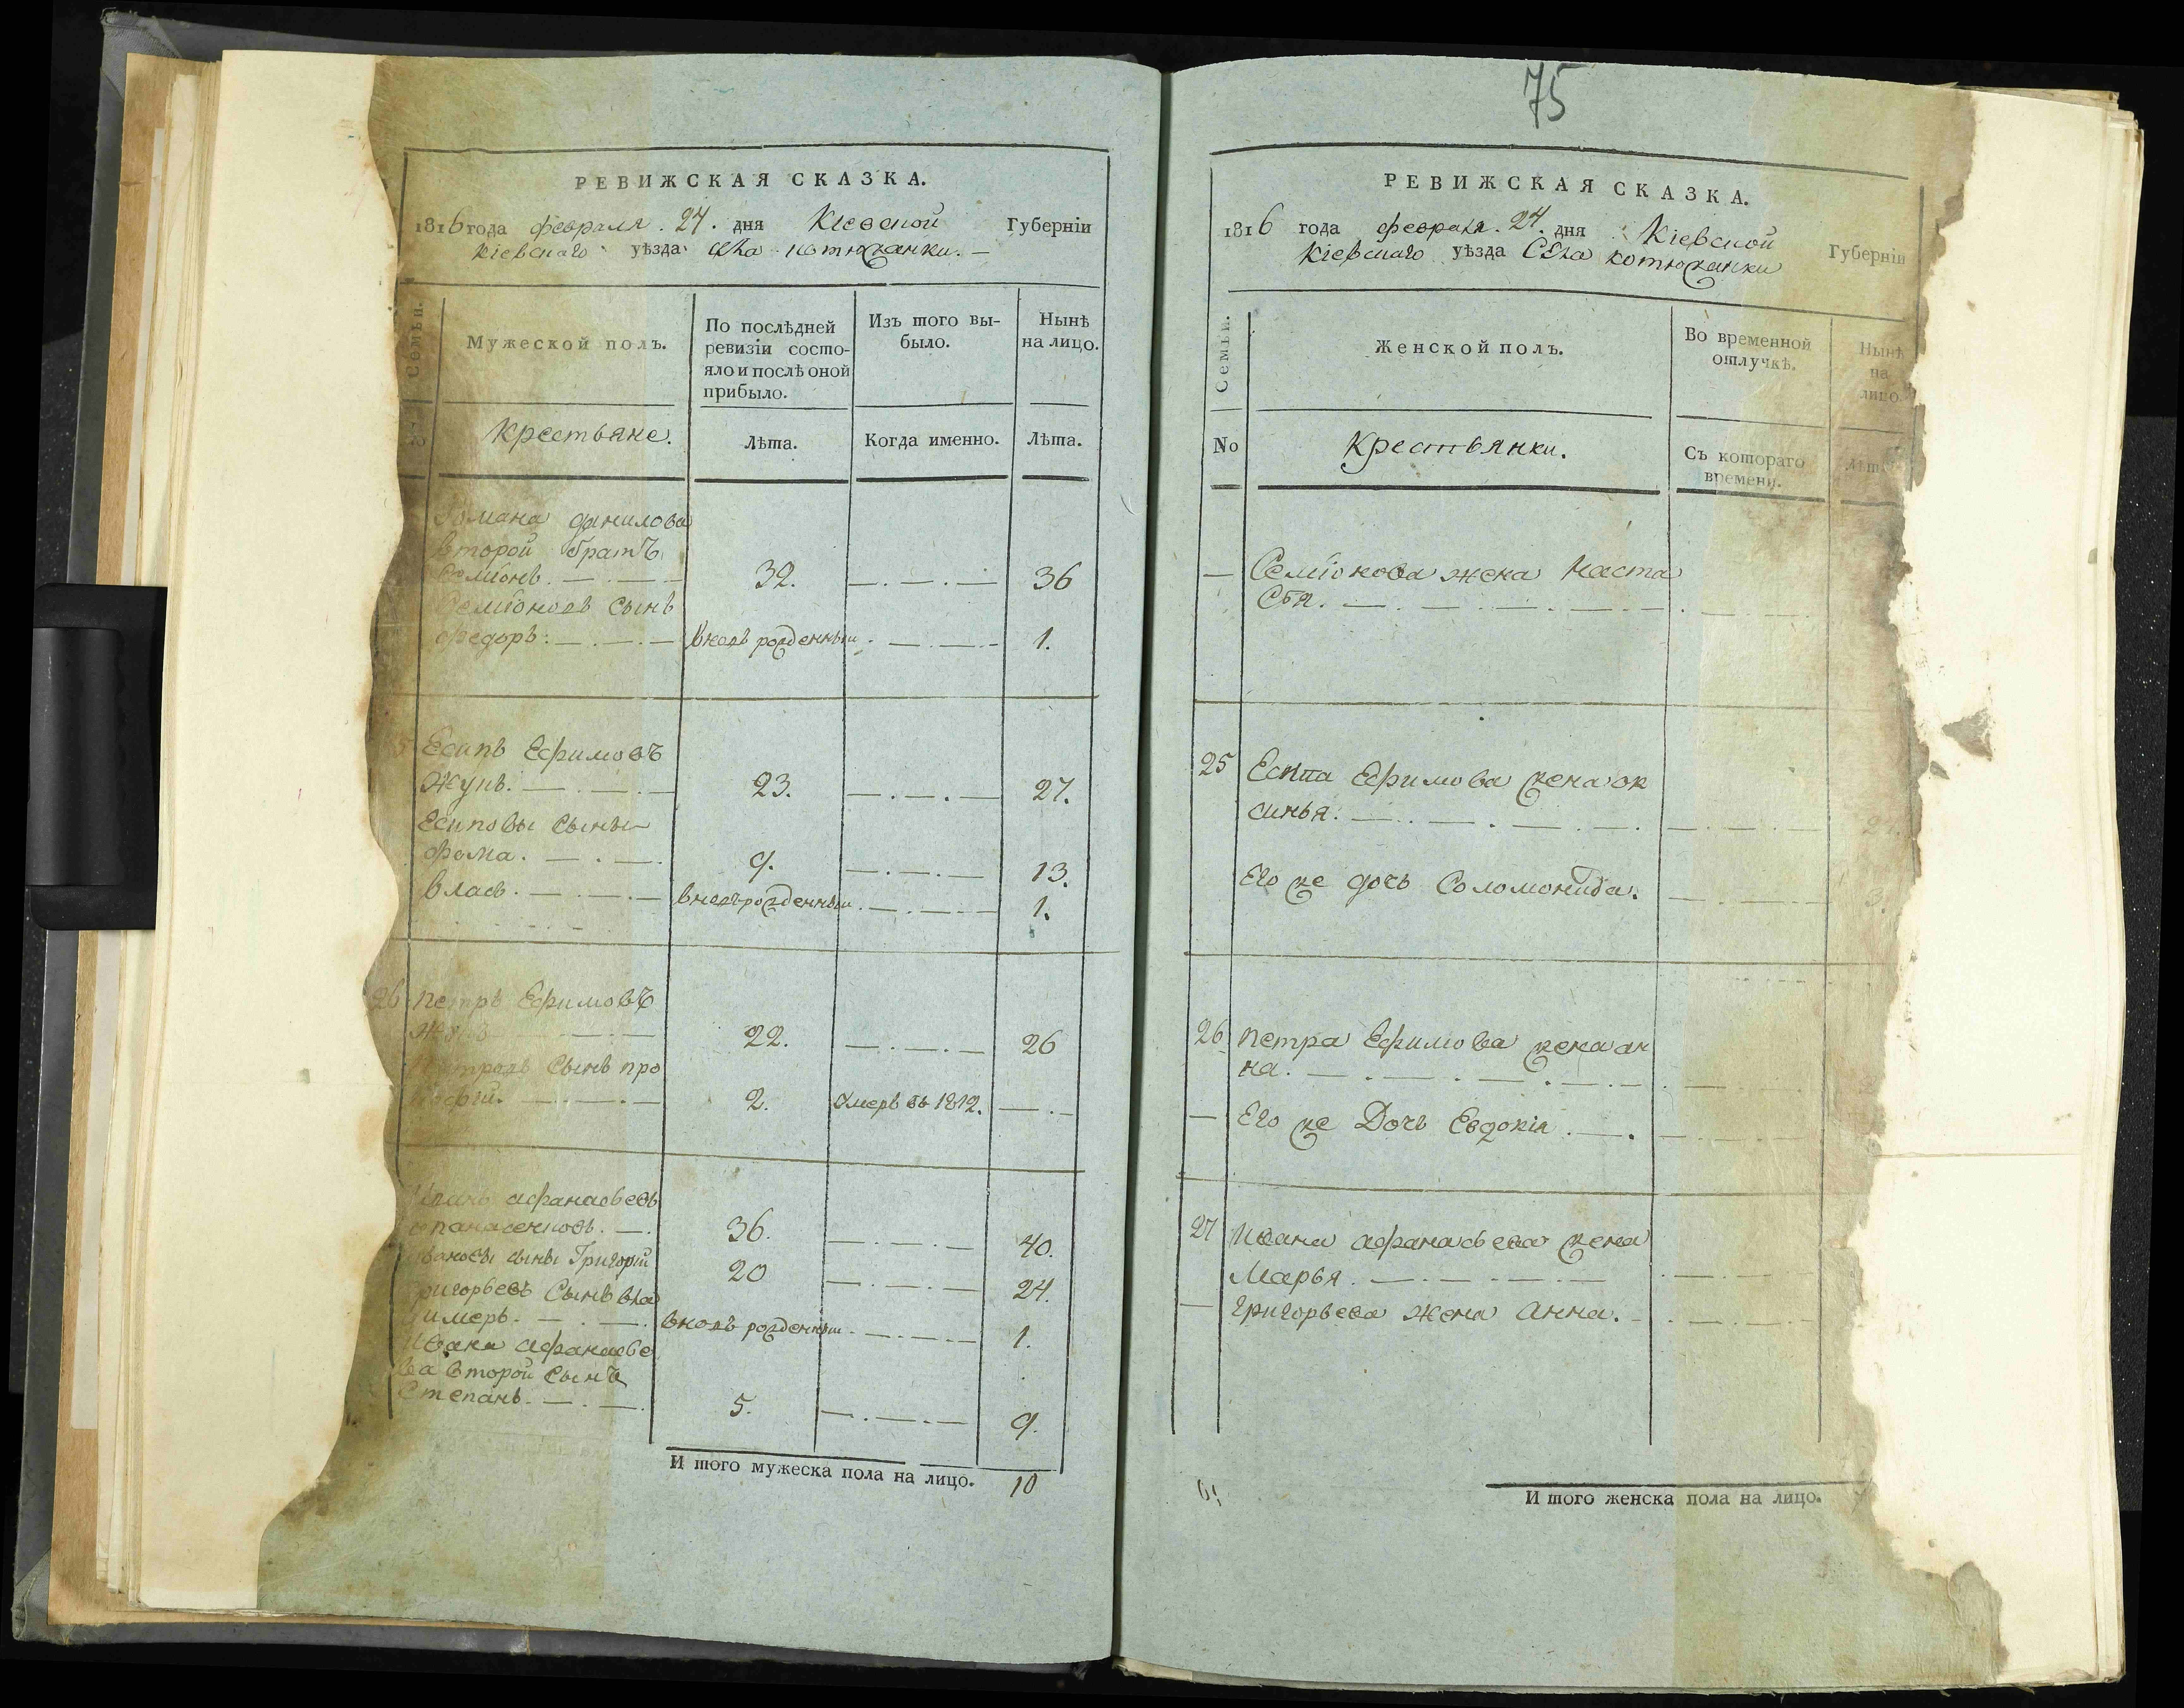 РЕВИЖСКАЯ СКАЗКА.
1816 года февраля. 24. дня Кіевской Губерніи
Кіевскаго уѣзда села котюжанки.
Семьи.
Мужеской полъ.
По послѣдней
ревизіи состо-
яло и послѣ оной
прибыло.
Изъ того вы-
было.
Нынѣ
на лицо.
Крестьяне.
Лѣта.
Когда именно.
Лѣта.
Романа данилова
второй братъ
Семіонъ. 32. 36
Семіоновъ сынъ
Федоръ. вновь рожденный. 1.
Есипъ Ефимовъ
Жукъ. 23. 27.
Есиповы сыны
Фома. 9. 13.
Власъ. вновь рожденный. 1.
26 Петръ Ефимовъ
22. 26
Петровъ сынъ про
кофій. 2. Умеръ въ 1812.
Иванъ афанасьевъ
опанасенковъ. 36. 40.
Ивановы сыны Григорій 20 24.
Григорьевъ Сынъ вла
димеръ. вновь рожденный 1.
Ивана афанасье
ва второй Сынъ
Степанъ. 5. 9.
И того мужеска пола на лицо. 10
75
РЕВИЖСКАЯ СКАЗКА.
1816 года февраля. 24. дня Кіевской Губерніи
Кіевскаго уѣзда Села котюжанки
Семьи.
Женской полъ.
Во временной
отлучкѣ.
Нынѣ
на
лицо.
No
Крестьянки.
Съ котораго
времени.
Лѣта
Семіонова жена Наста
сья.
25 Есипа Ефимова жена ок
синья.
Его же дочь Соломонида. 3.
26 Петра Ефимова жена ан
на.
Его же Дочь Евдокія.
27 Ивана афанасьева жена
Марья.
Григорьева жена анна.
И того женска пола на лицо.